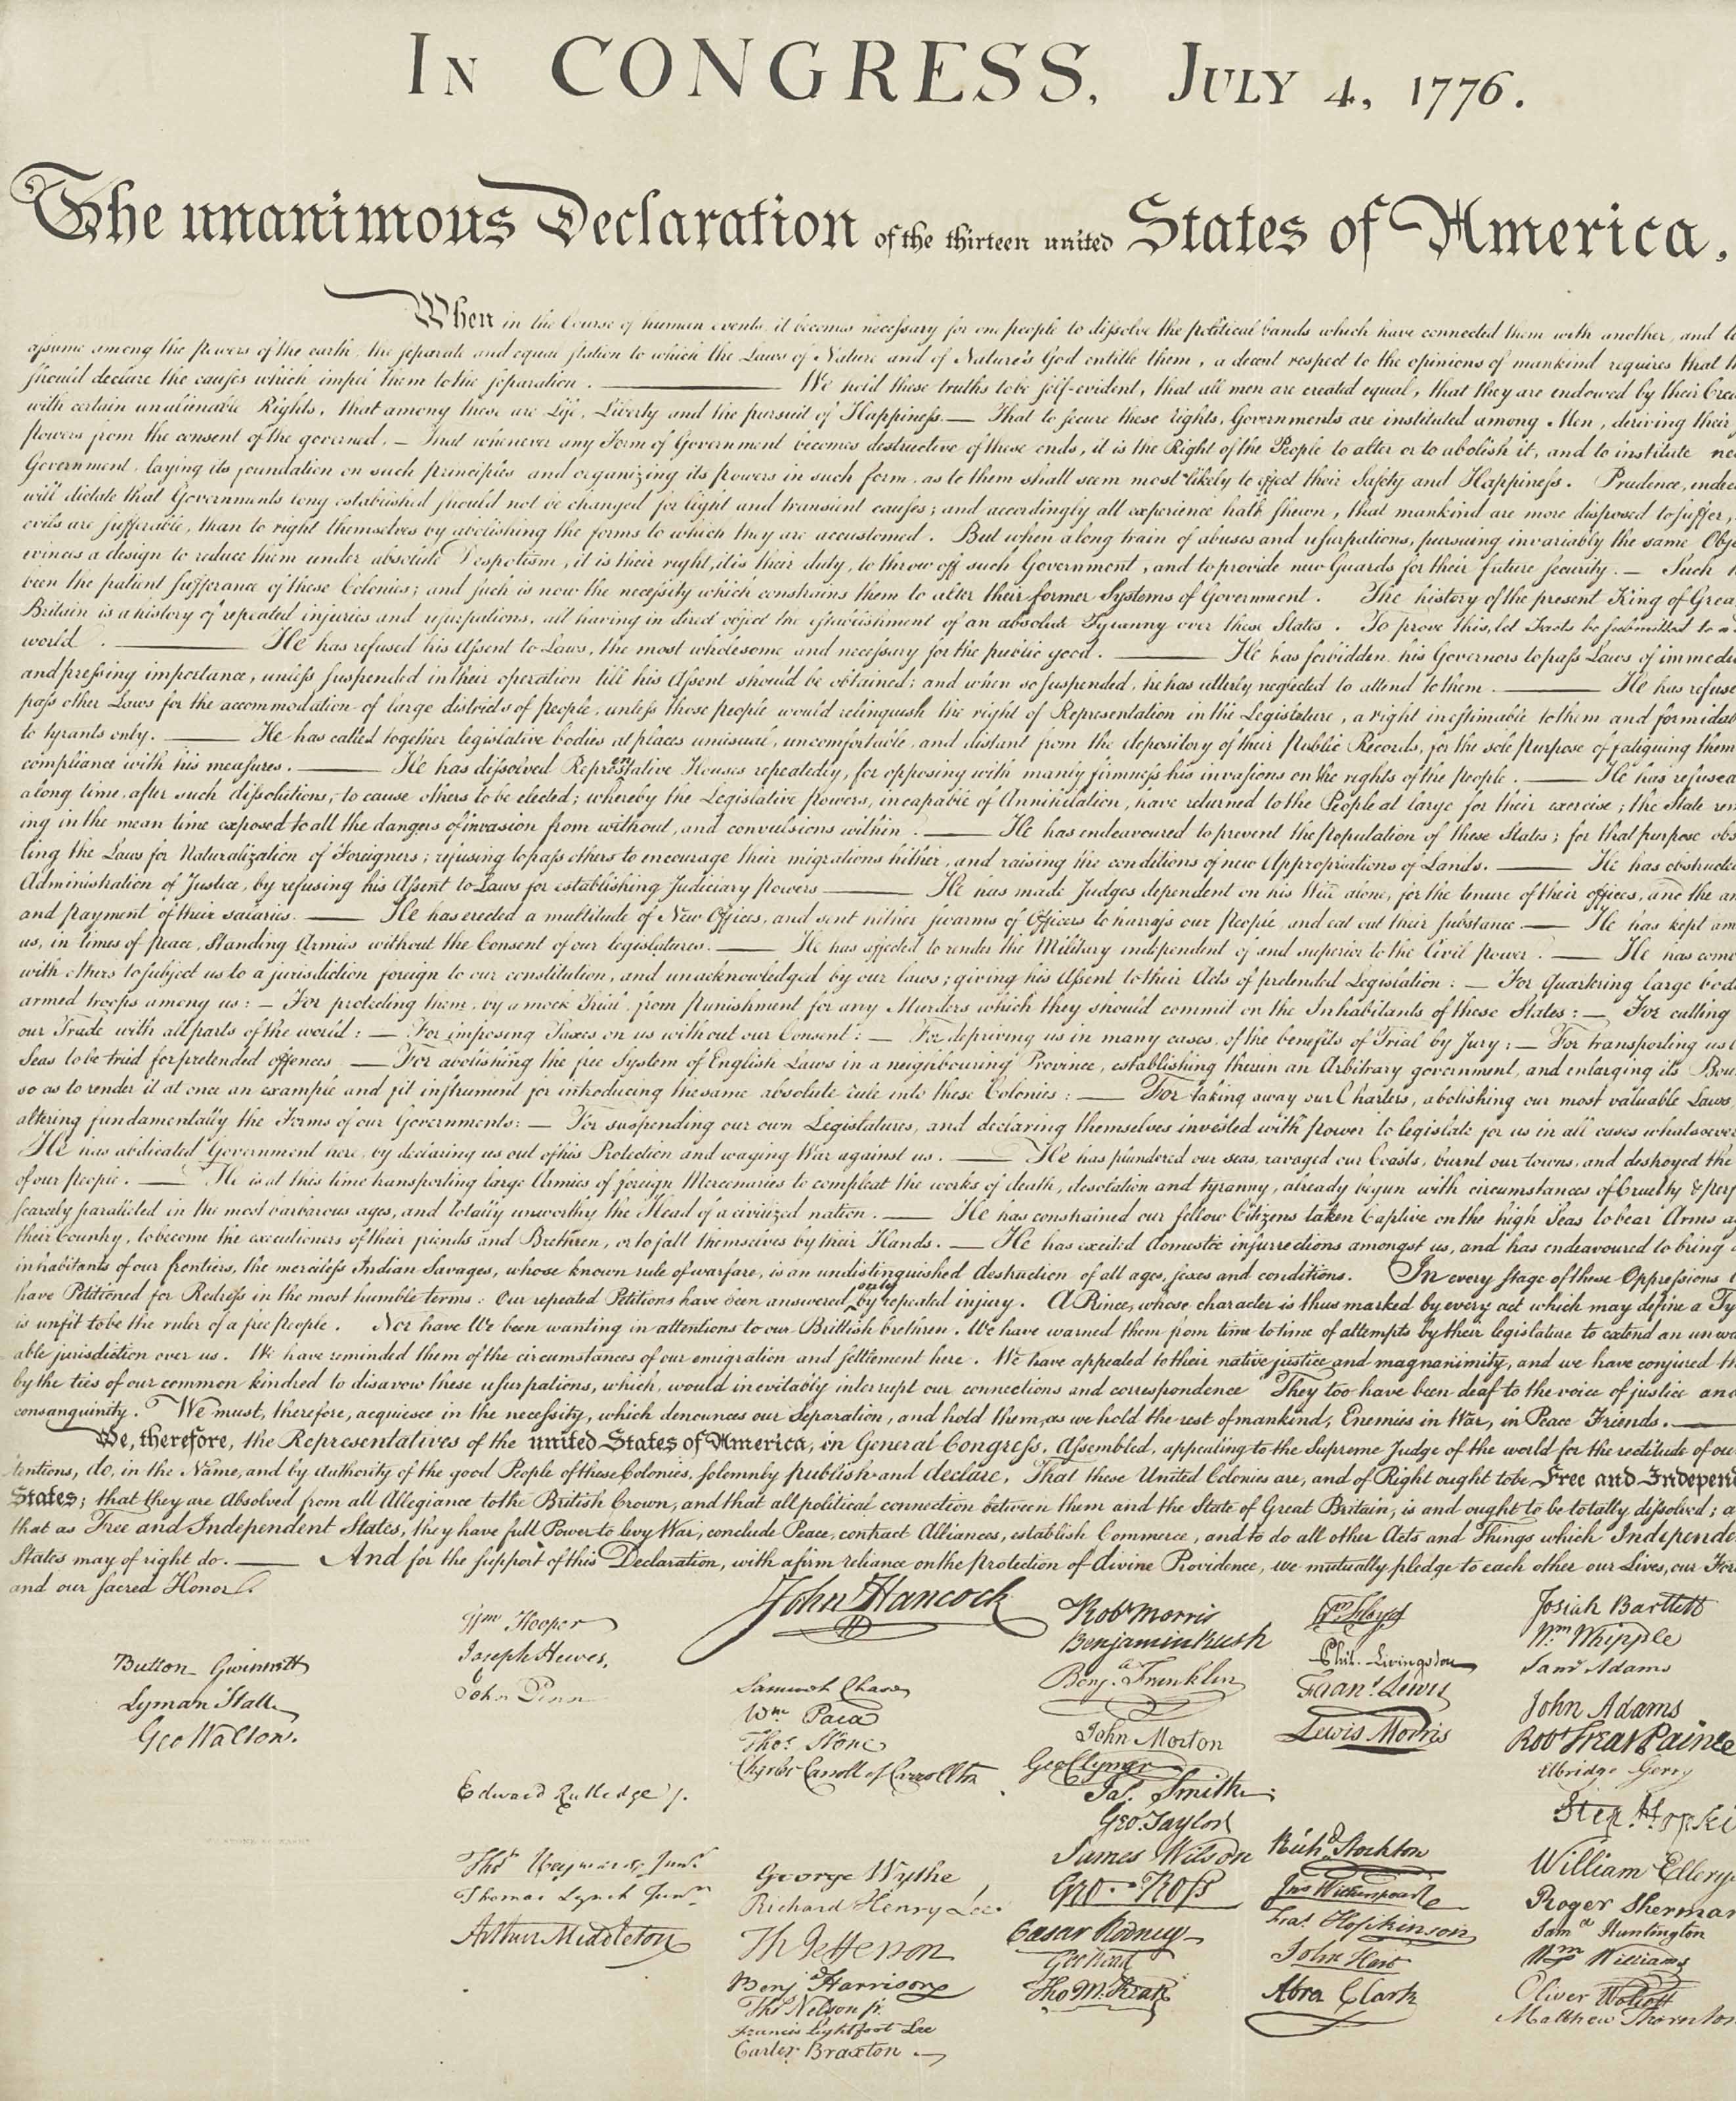 IN CONGRESS, JULY 4, 1776.
The unanimous Declaration of the thirteen united States of America,
When in the Course of human events, it becomes necessary for one people to dissolve the political bands which have connected them with another, and to
assume among the powers of the earth, the separate and equal station to which the Laws of Nature and of Nature's God entitle them, a decent respect to the opinions of mankind requires that
should declare the causes which impel them to the separation. — We hold these truths to be self-evident, that all men are created equal, that they are endowed by their Crea
with certain unalienable Rights, that among these are Life, Liberty and the pursuit of Happiness.— That to secure these rights, Governments are instituted among Men, deriving their
powers from the consent of the governed,— That whenever any Form of Government becomes destructive of these ends, it is the Right of the People to alter or to abolish it, and to institute ne
Government, laying its foundation on such principles and organizing its powers in such form, as to them shall seem most likely to effect their Safety and Happiness. Prudence, indee
will dictate that Governments long established should not be changed for light and transient causes; and accordingly all experience hath shewn, that mankind are more disposed to suffer,
evils are sufferable, than to right themselves by abolishing the forms to which they are accustomed. But when a long train of abuses and usurpations, pursuing invariably the same Obje
evinces a design to reduce them under absolute Despotism, it is their right, it is their duty, to throw off such Government, and to provide new Guards for their future security.— Such
been the patient sufferance of these Colonies; and such is now the necessity which constrains them to alter their former Systems of Government. The history of the present King of Grea
Britain is a history of repeated injuries and usurpations, all having in direct object the establishment of an absolute Tyranny over these States. To prove this, let Facts be submitted to a
world. — He has refused his Assent to Laws, the most wholesome and necessary for the public good. — He has forbidden his Governors to pass Laws of immedi
and pressing importance, unless suspended in their operation till his Assent should be obtained; and when so suspended, he has utterly neglected to attend to them. — He has refuse
pass other Laws for the accommodation of large districts of people, unless those people would relinquish the right of Representation in the Legislature, a right inestimable to them and formidab
to tyrants only. — He has called together legislative bodies at places unusual, uncomfortable, and distant from the depository of their Public Records, for the sole purpose of fatiguing them
compliance with his measures. — He has dissolved Representative Houses repeatedly, for opposing with manly firmness his invasions on the rights of the people. — He has refused
a long time, after such dissolutions, to cause others to be elected; whereby the Legislative Powers, incapable of Annihilation, have returned to the People at large for their exercise; the State rem
ing in the mean time exposed to all the dangers of invasion from without, and convulsions within. — He has endeavoured to prevent the population of these States; for that purpose obs
ting the Laws for Naturalization of Foreigners; refusing to pass others to encourage their migrations hither, and raising the conditions of new Appropriations of Lands. — He has obstructe
Administration of Justice, by refusing his Assent to Laws for establishing Judiciary Powers — He has made Judges dependent on his Will alone, for the tenure of their offices, and the am
and payment of their salaries. — He has erected a multitude of New Offices, and sent hither swarms of Officers to harrass our People, and eat out their substance. — He has kept am
us, in times of peace, Standing Armies without the Consent of our legislatures. — He has affected to render the Military independent of and superior to the Civil Power. — He has com
with others to subject us to a jurisdiction foreign to our constitution, and unacknowledged by our laws; giving his Assent to their Acts of pretended Legislation: — For quartering large bod
armed troops among us: — For protecting them, by a mock Trial, from Punishment for any Murders which they should commit on the Inhabitants of these States: — For cutting
our Trade with all parts of the world: — For imposing Taxes on us without our Consent: — For depriving us in many cases, of the benefits of Trial by Jury: — For transporting us
Seas to be tried for pretended offences — For abolishing the free System of English Laws in a neighbouring Province, establishing therein an Arbitrary government, and enlarging its Bou
so as to render it at once an example and fit instrument for introducing the same absolute rule into these Colonies: — For taking away our Charters, abolishing our most valuable Laws
altering fundamentally the Forms of our Governments: — For suspending our own Legislatures, and declaring themselves invested with power to legislate for us in all cases whatsoever
He has abdicated Government here, by declaring us out of his Protection and waging War against us. — He has plundered our seas, ravaged our Coasts, burnt our towns, and destroyed the
of our people. — He is at this time transporting large Armies of foreign Mercenaries to compleat the works of death, desolation and tyranny, already begun with circumstances of Cruelty & perf
scarcely paralleled in the most barbarous ages, and totally unworthy the Head of a civilized nation. — He has constrained our fellow Citizens taken Captive on the high Seas to bear Arms a
their Country, to become the executioners of their friends and Brethren, or to fall themselves by their Hands. — He has excited domestic insurrections amongst us, and has endeavoured to bring
inhabitants of our frontiers, the merciless Indian Savages, whose known rule of warfare, is an undistinguished destruction of all ages, sexes and conditions. In every stage of these Oppressions
have Petitioned for Redress in the most humble terms: Our repeated Petitions have been answered only by repeated injury. A Prince, whose character is thus marked by every act which may define a Ty
is unfit to be the ruler of a free people. Nor have We been wanting in attentions to our Brittish brethren. We have warned them from time to time of attempts by their legislature to extend an unwa
able jurisdiction over us. We have reminded them of the circumstances of our emigration and settlement here. We have appealed to their native justice and magnanimity, and we have conjured th
by the ties of our common kindred to disavow these usurpations, which, would inevitably interrupt our connections and correspondence They too have been deaf to the voice of justice and
consanguinity. We must, therefore, acquiesce in the necessity, which denounces our Separation, and hold them, as we hold the rest of mankind, Enemies in War, in Peace Friends. —
We, therefore, the Representatives of the united States of America, in General Congress, Assembled, appealing to the Supreme Judge of the world for the rectitude of ou
tentions, do, in the Name, and by Authority of the good People of these Colonies, solemnly publish and declare, That these United Colonies are, and of Right ought to be Free and Independ
States; that they are Absolved from all Allegiance to the British Crown, and that all political connection between them and the State of Great Britain, is and ought to be totally dissolved; a
that as Free and Independent States, they have full Power to levy War, conclude Peace, contract Alliances, establish Commerce, and to do all other Acts and Things which Independe
States may of right do. — And for the support of this Declaration, with a firm reliance on the protection of divine Providence, we mutually pledge to each other our Lives, our For
and our sacred Honor.
Button Gwinnett
Lyman Hall
Geo Walton.
Wm Hooper
Joseph Hewes,
John Penn
Edward Rutledge /.
Thos Heyward Junr.
Thomas Lynch Junr.
Arthur Middleton
John Hancock
Samuel Chase
Wm. Paca
Thos. Stone
Charles Carroll of Carrollton
George Wythe
Richard Henry Lee.
Th Jefferson
Benj Harrison
Thos Nelson jr.
Francis Lightfoot Lee
Carter Braxton
Robt Morris
Benjamin Rush
Benja. Franklin
John Morton
Geo Clymer
Jas. Smith
Geo. Taylor
James Wilson
Geo. Ross
Caesar Rodney
Geo Read
Tho M:Kean
Wm Floyd
Phil. Livingston
Frans. Lewis
Lewis Morris
Richd Stockton
Jno Witherspoon
Fras. Hopkinson
John Hart
Abra Clark
Josiah Bartlett
Wm: Whipple
Saml Adams
John Adams
Robt Treat Paine
Elbridge Gerry
Step. Hopki
William Ellery
Roger Sherman
Samel Huntington
Wm Williams
Oliver Wolcott
Matthew Thornton